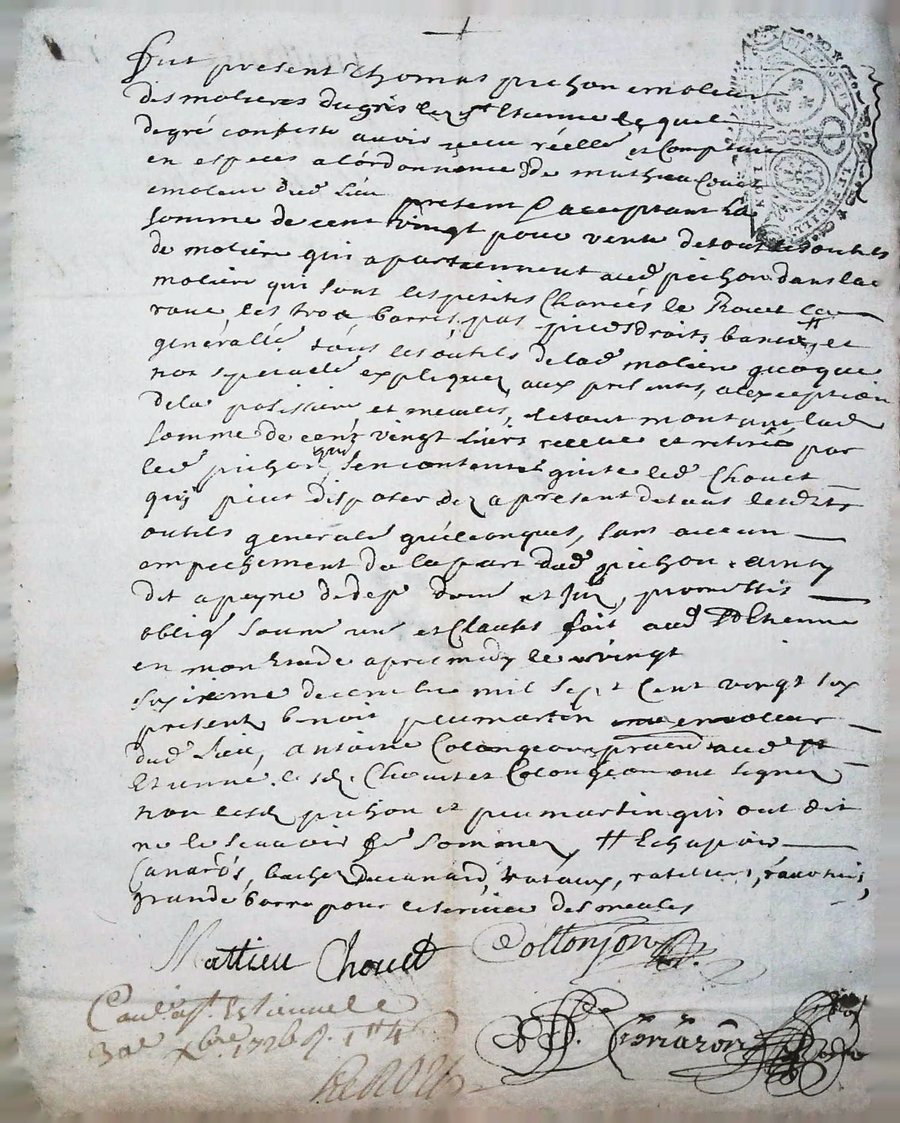 Fut present Thomas pichon emoleur
des molieres du grès lez st Etienne lequel
de gré confesse avoir receu réelle et comptant
en especes a lordonnence de mathieu Chouet
emoleur dud lieu present & acceptant la
somme de cent vingt pour vente de tout les outils
de moliere qui apartiennent aud pichon dans la
moliere qui sont les petites le Rouet la
roue les trois barres, pas piedsdroits, bancs, # et
generalle tous les outils de lad moliere quoque
non speciale expliquez aux presentes, a lexception
de la et meules, le tout montant lad
somme de cent vingt livres receue et retirée par
led pichon qui sen contente quitte led Chouet
qui peut disposer dez a present de tous lesdts
outils generale quelconques, sans aucun
empechement de la part dud pichon, ainsy
dit a peyne de dep dom et int, promettis
obliq soume ren et Clauses fait aud St Etienne
en mon Etude apres midy le vingt
sixieme decembre mil sept Cent vingt six
present benoit peumartin emoleur
dud lieu, antoine Colongeon aud st
Etienne. lesd. Chouet et Colongeon ont signez
non lesd pichon et peumartin qui ont dit
ne le scavoir fe sommez, # Echapoirs
Canards, baches du canard, rateliers,
grande barre pour le service des meules
Mattieu Chouet Collonjon
Conle a St Estienne le
30e xbre 1726 R. 1# 4